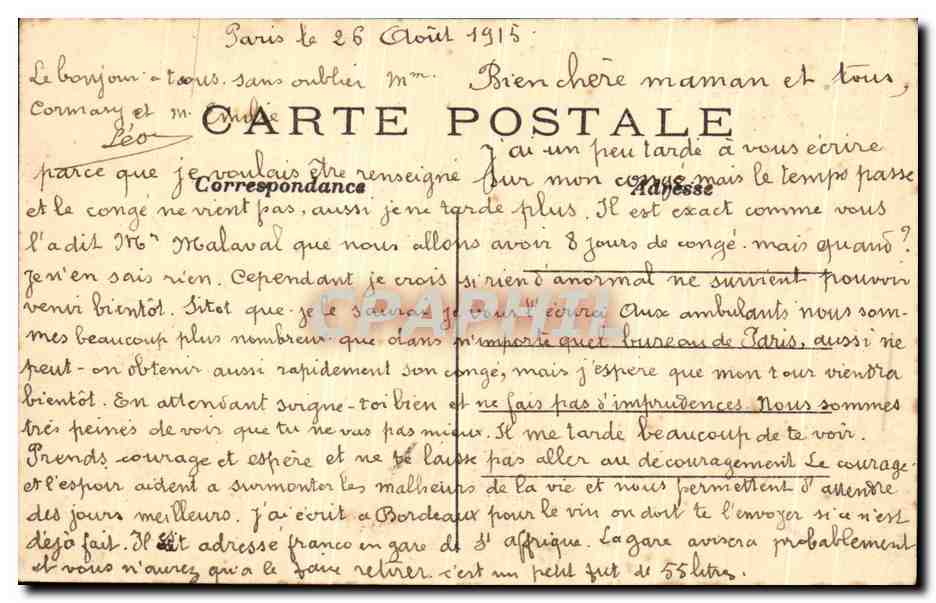 Paris le 26 Août 1915.
Le bonjour à tous sans oublier Mme
Cormary et M. Emilie
Léo
Bien chère maman et tous,
CARTE POSTALE
J'ai un peu tardé à vous écrire
parce que je voulais être renseigné sur mon congé mais le temps passe
Correspondance
Adresse
et le congé ne vient pas, aussi je ne tarde plus. Il est exact comme vous
l'a dit Mr Malaval que nous allons avoir 8 jours de congé. mais quand?
Je n'en sais rien. Cependant je crois si rien d'anormal ne survient pouvoir
venir bientôt. Sitot que je le saurai je vous l'écrirai Aux ambulants nous som-
CPAPHIL
mes beaucoup plus nombreux que dans n'importe quel bureau de Paris, aussi ne
peut-on obtenir aussi rapidement son congé, mais j'espère que mon tour viendra
bientôt. En attendant soigne-toi bien et ne fais pas d'imprudences. Nous sommes
très peinés de voir que tu ne vas pas mieux. Il me tarde beaucoup de te voir.
Prends courage et espère et ne te laisse pas aller au découragement Le courage
et l'espoir aident a surmonter les malheurs de la vie et nous permettent d'attendre
des jours meilleurs. J'ai écrit a Bordeaux pour le vin on doit te l'envoyer si ce n'est
déjà fait. Il est adressé franco en gare de St Affrique. La gare avisera probablement
et vous n'aurez qu'a le faire retirer. c'est un petit fut de 55 litres.